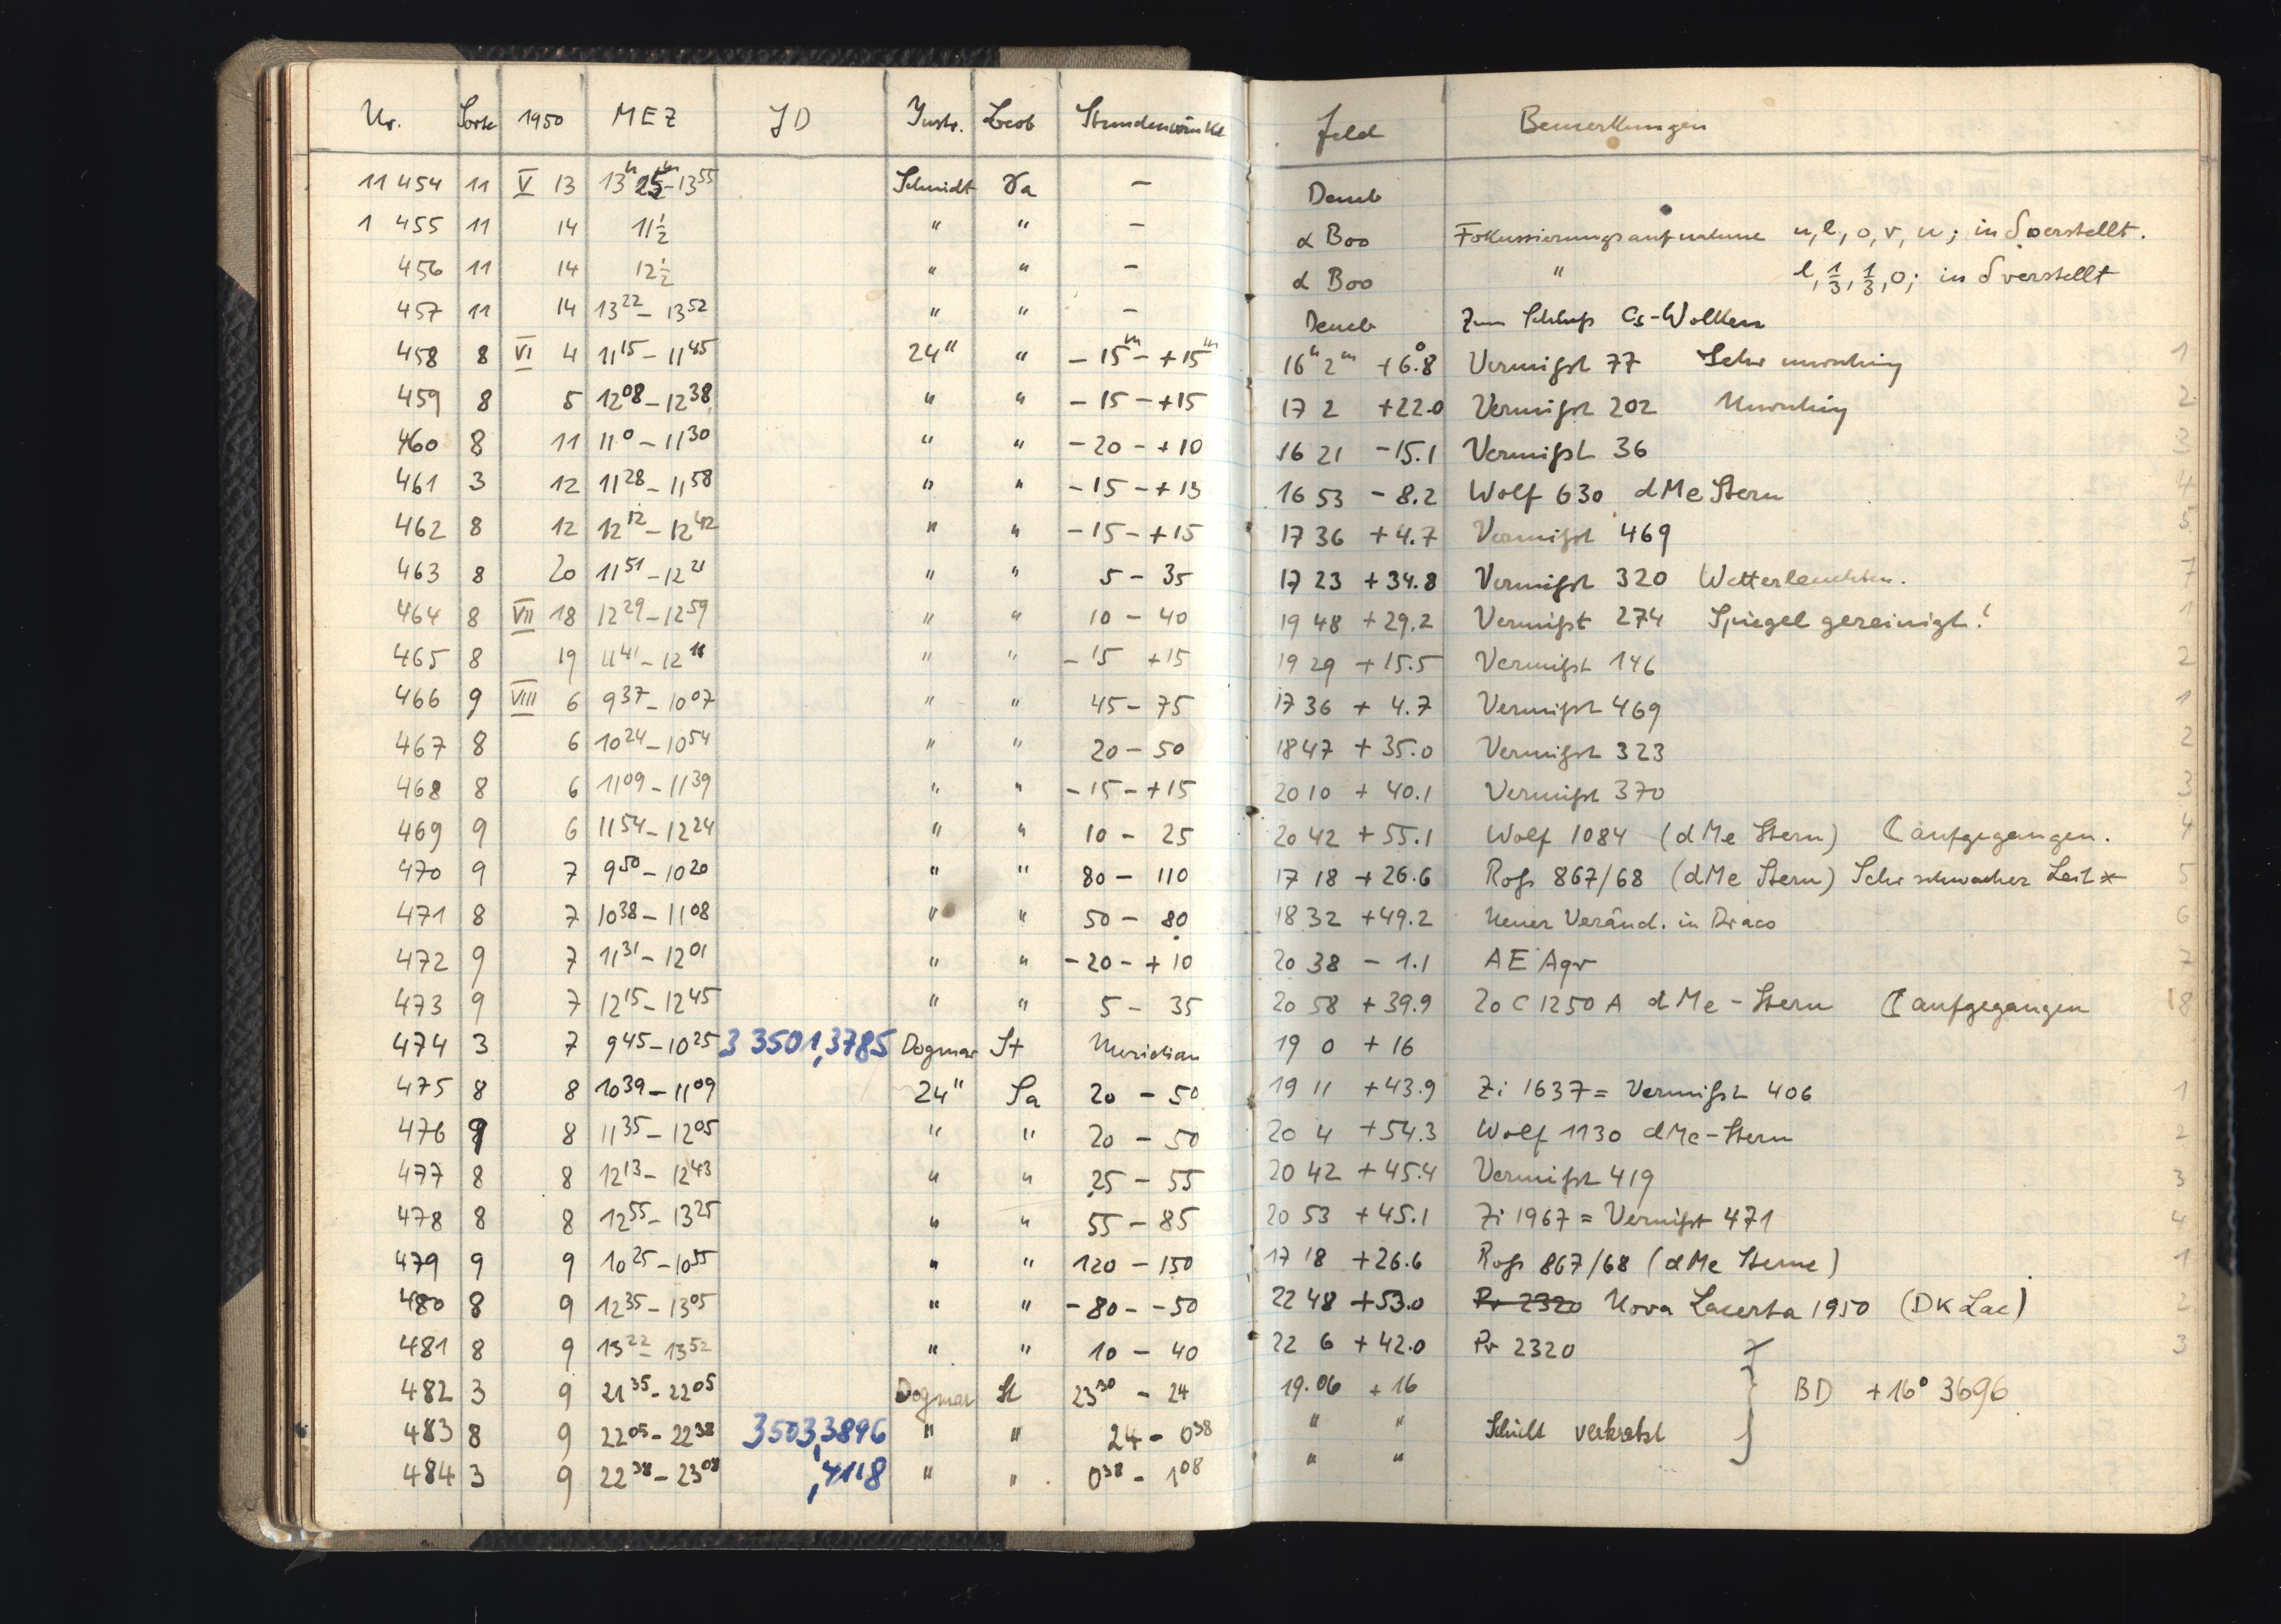 Nr. Sorte 1950 MEZ JD Instr. Beob Stundenwinkel Feld Bemerkungen
11 454 11 V 13 13h 25m - 13 55 Schmidt — Deneb
1 455 11 14 11 1/2 " " — α Boo Fokussierungsaufnahme u, l, o, v, u; in δ verstellt.
456 11 14 12 1/2 " " — α Boo " l, 1/3, 1/3, o; in δ verstellt
457 11 14 13 22 - 13 52 " " — Deneb Zum Schluß Cs-Wolken
458 8 VI 4 11 15 - 11 45 24" " - 15m - + 15m 16h 2m +6°.8 Vermißt 77 Sehr unruhig 1
459 8 5 12 08 - 12 38 " " - 15 - + 15 17 2 +22.0 Vermißt 202 Unruhig 2
460 8 11 11 0 - 11 30 " " - 20 - + 10 16 21 - 15.1 Vermißt 36 3
461 3 12 11 28 - 11 58 " " - 15 - + 15 16 53 - 8.2 Wolf 630 dMe Stern 4
462 8 12 12 12 - 12 42 " " - 15 - + 15 17 36 + 4.7 Vermißt 469 5
463 8 20 11 51 - 12 21 " " 5 - 35 17 23 + 34.8 Vermißt 320 Wetterleuchten. 7
464 8 VII 18 12 29 - 12 59 " " 10 - 40 19 48 + 29.2 Vermißt 274 Spiegel gereinigt! 1
465 8 19 11 41 - 12 11 " " - 15 + 15 19 29 + 15.5 Vermißt 146 2
466 9 VIII 6 9 37 - 10 07 " " 45 - 75 17 36 + 4.7 Vermißt 469 1
467 8 6 10 24 - 10 54 " " 20 - 50 18 47 + 35.0 Vermißt 323 2
468 8 6 11 09 - 11 39 " " - 15 - + 15 20 10 + 40.1 Vermißt 370 3
469 9 6 11 54 - 12 24 " " 10 - 25 20 42 + 55.1 Wolf 1084 (dMe Stern) ☾ aufgegangen. 4
470 9 7 9 50 - 10 20 " " 80 - 110 17 18 + 26.6 Roß 867/68 (dMe Stern) Sehr schwacher Leit* 5
471 8 7 10 38 - 11 08 " " 50 - 80 18 32 + 49.2 Neuer Veränd. in Draco 6
472 9 7 11 31 - 12 01 " " - 20 - + 10 20 38 - 1.1 AE Aqr 7
473 9 7 12 15 - 12 45 " " 5 - 35 20 58 + 39.9 20 C 1250 A dMe - Stern ☾ aufgegangen 8
474 3 7 9 45 - 10 25 3 3501,3785 Dogmar St Meridian 19 0 + 16
475 8 8 10 39 - 11 09 24" Ta 20 - 50 19 11 + 43.9 Zi 1637 = Vermißt 406 1
476 9 8 11 35 - 12 05 " " 20 - 50 20 4 + 54.3 Wolf 1130 dMe-Stern 2
477 8 8 12 13 - 12 43 " " 25 - 55 20 42 + 45.4 Vermißt 419 3
478 8 8 12 55 - 13 25 " " 55 - 85 20 53 + 45.1 Zi 1967 = Vermißt 471 4
479 9 9 10 25 - 10 55 " " 120 - 150 17 18 + 26.6 Roß 867/68 (dMe Sterne) 1
480 8 9 12 35 - 13 05 " " - 80 - - 50 22 48 + 53.0 Pr 2320 Nova Lacerta 1950 (DK Lac) 2
481 8 9 13 22 - 13 52 " " 10 - 40 22 6 + 42.0 Pr 2320 3
482 3 9 21 35 - 22 05 Dogmar St 23 30 - 24 19.06 + 16 BD + 16° 3696
483 8 9 22 05 - 22 38 3503,3896 " " 24 - 0 38 " " Schicht verkratzt
484 3 9 22 38 - 23 08 ,4118 " " 0 38 - 1 08 " "